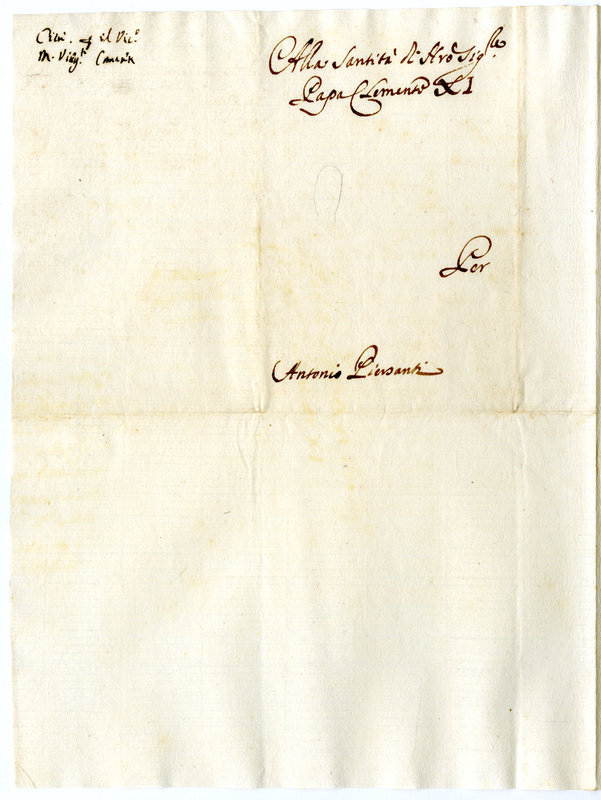 il Vic.
M. Virg.
Alla Santità di Nro Sigre
Papa Clemente XI
Per
Antonio Piersanti